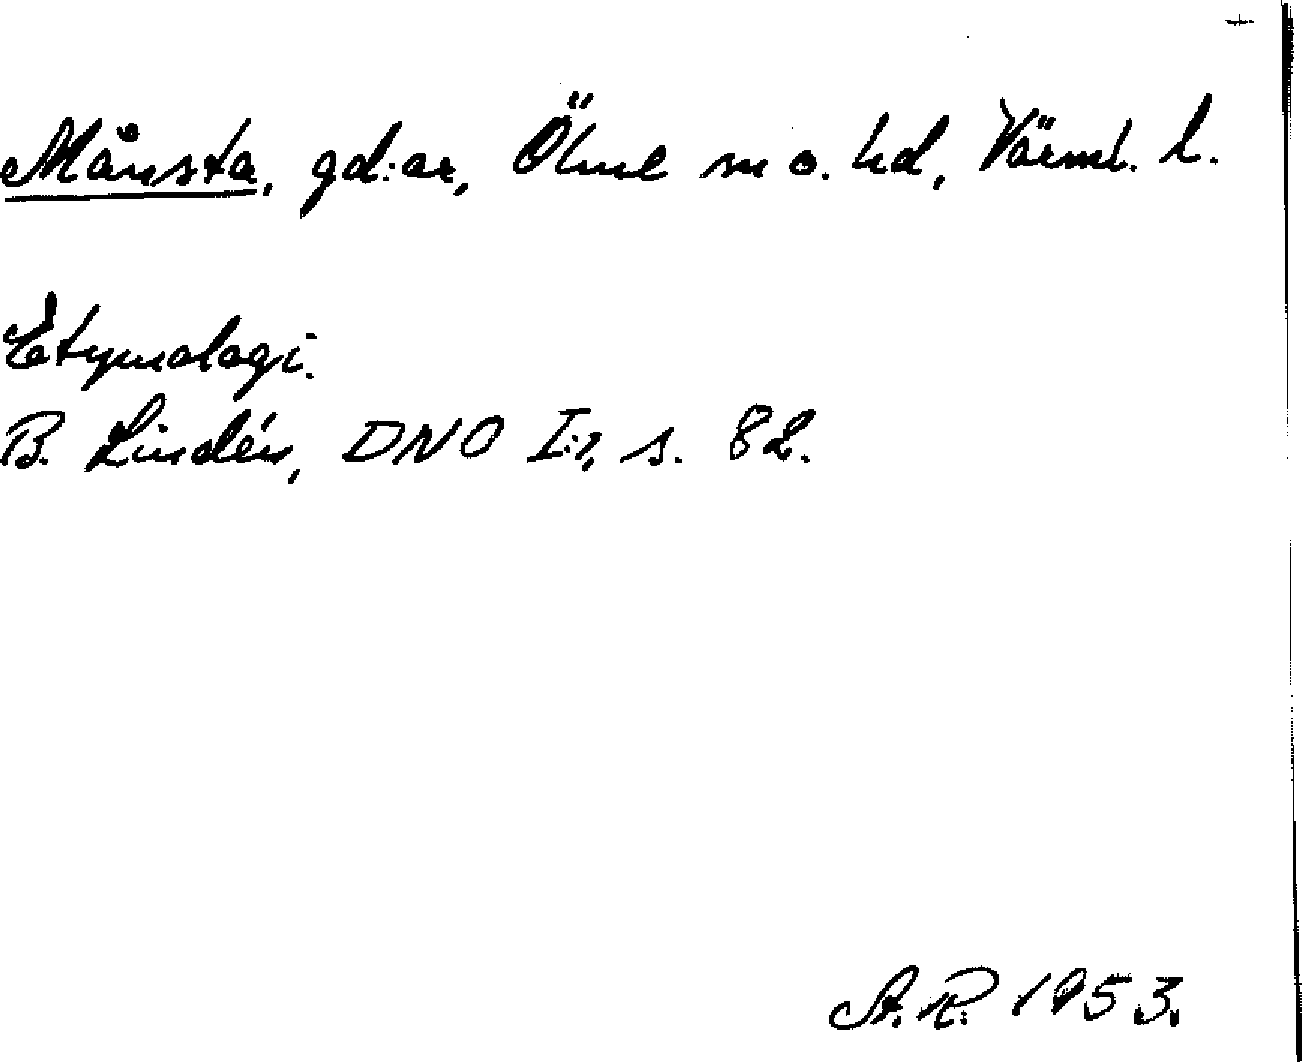 +
Månsta, gd:ar, Ölme sn o. hd, Värml. l.
Etymologi.
B. Lindén, DNO I:1, s. 82.
A.R. 1953.